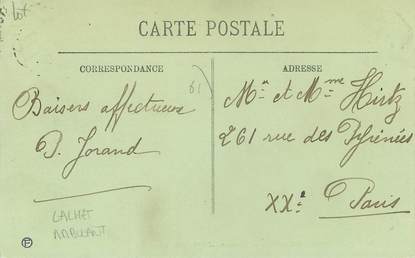 Lot
CARTE POSTALE
CORRESPONDANCE
ADRESSE
61
Baisers affectueux
D. Jorand
Mr et Mme Hirtz
261 rue des Pyrénées
XXe Paris
CACHET
AMBULANT